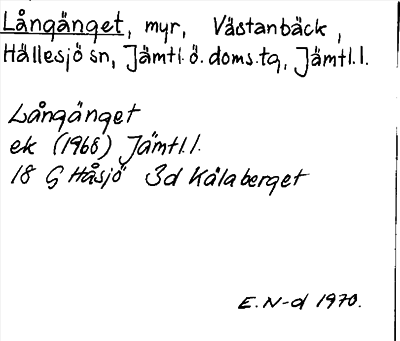 Långänget, myr, Västanbäck,
Hällesjö sn, Jämtl.ö.doms.tg, Jämtl.l.
Långänget
ek (1968) Jämtl.l.
18 G Håsjö 3d Kålaberget
E. N-d 1970.